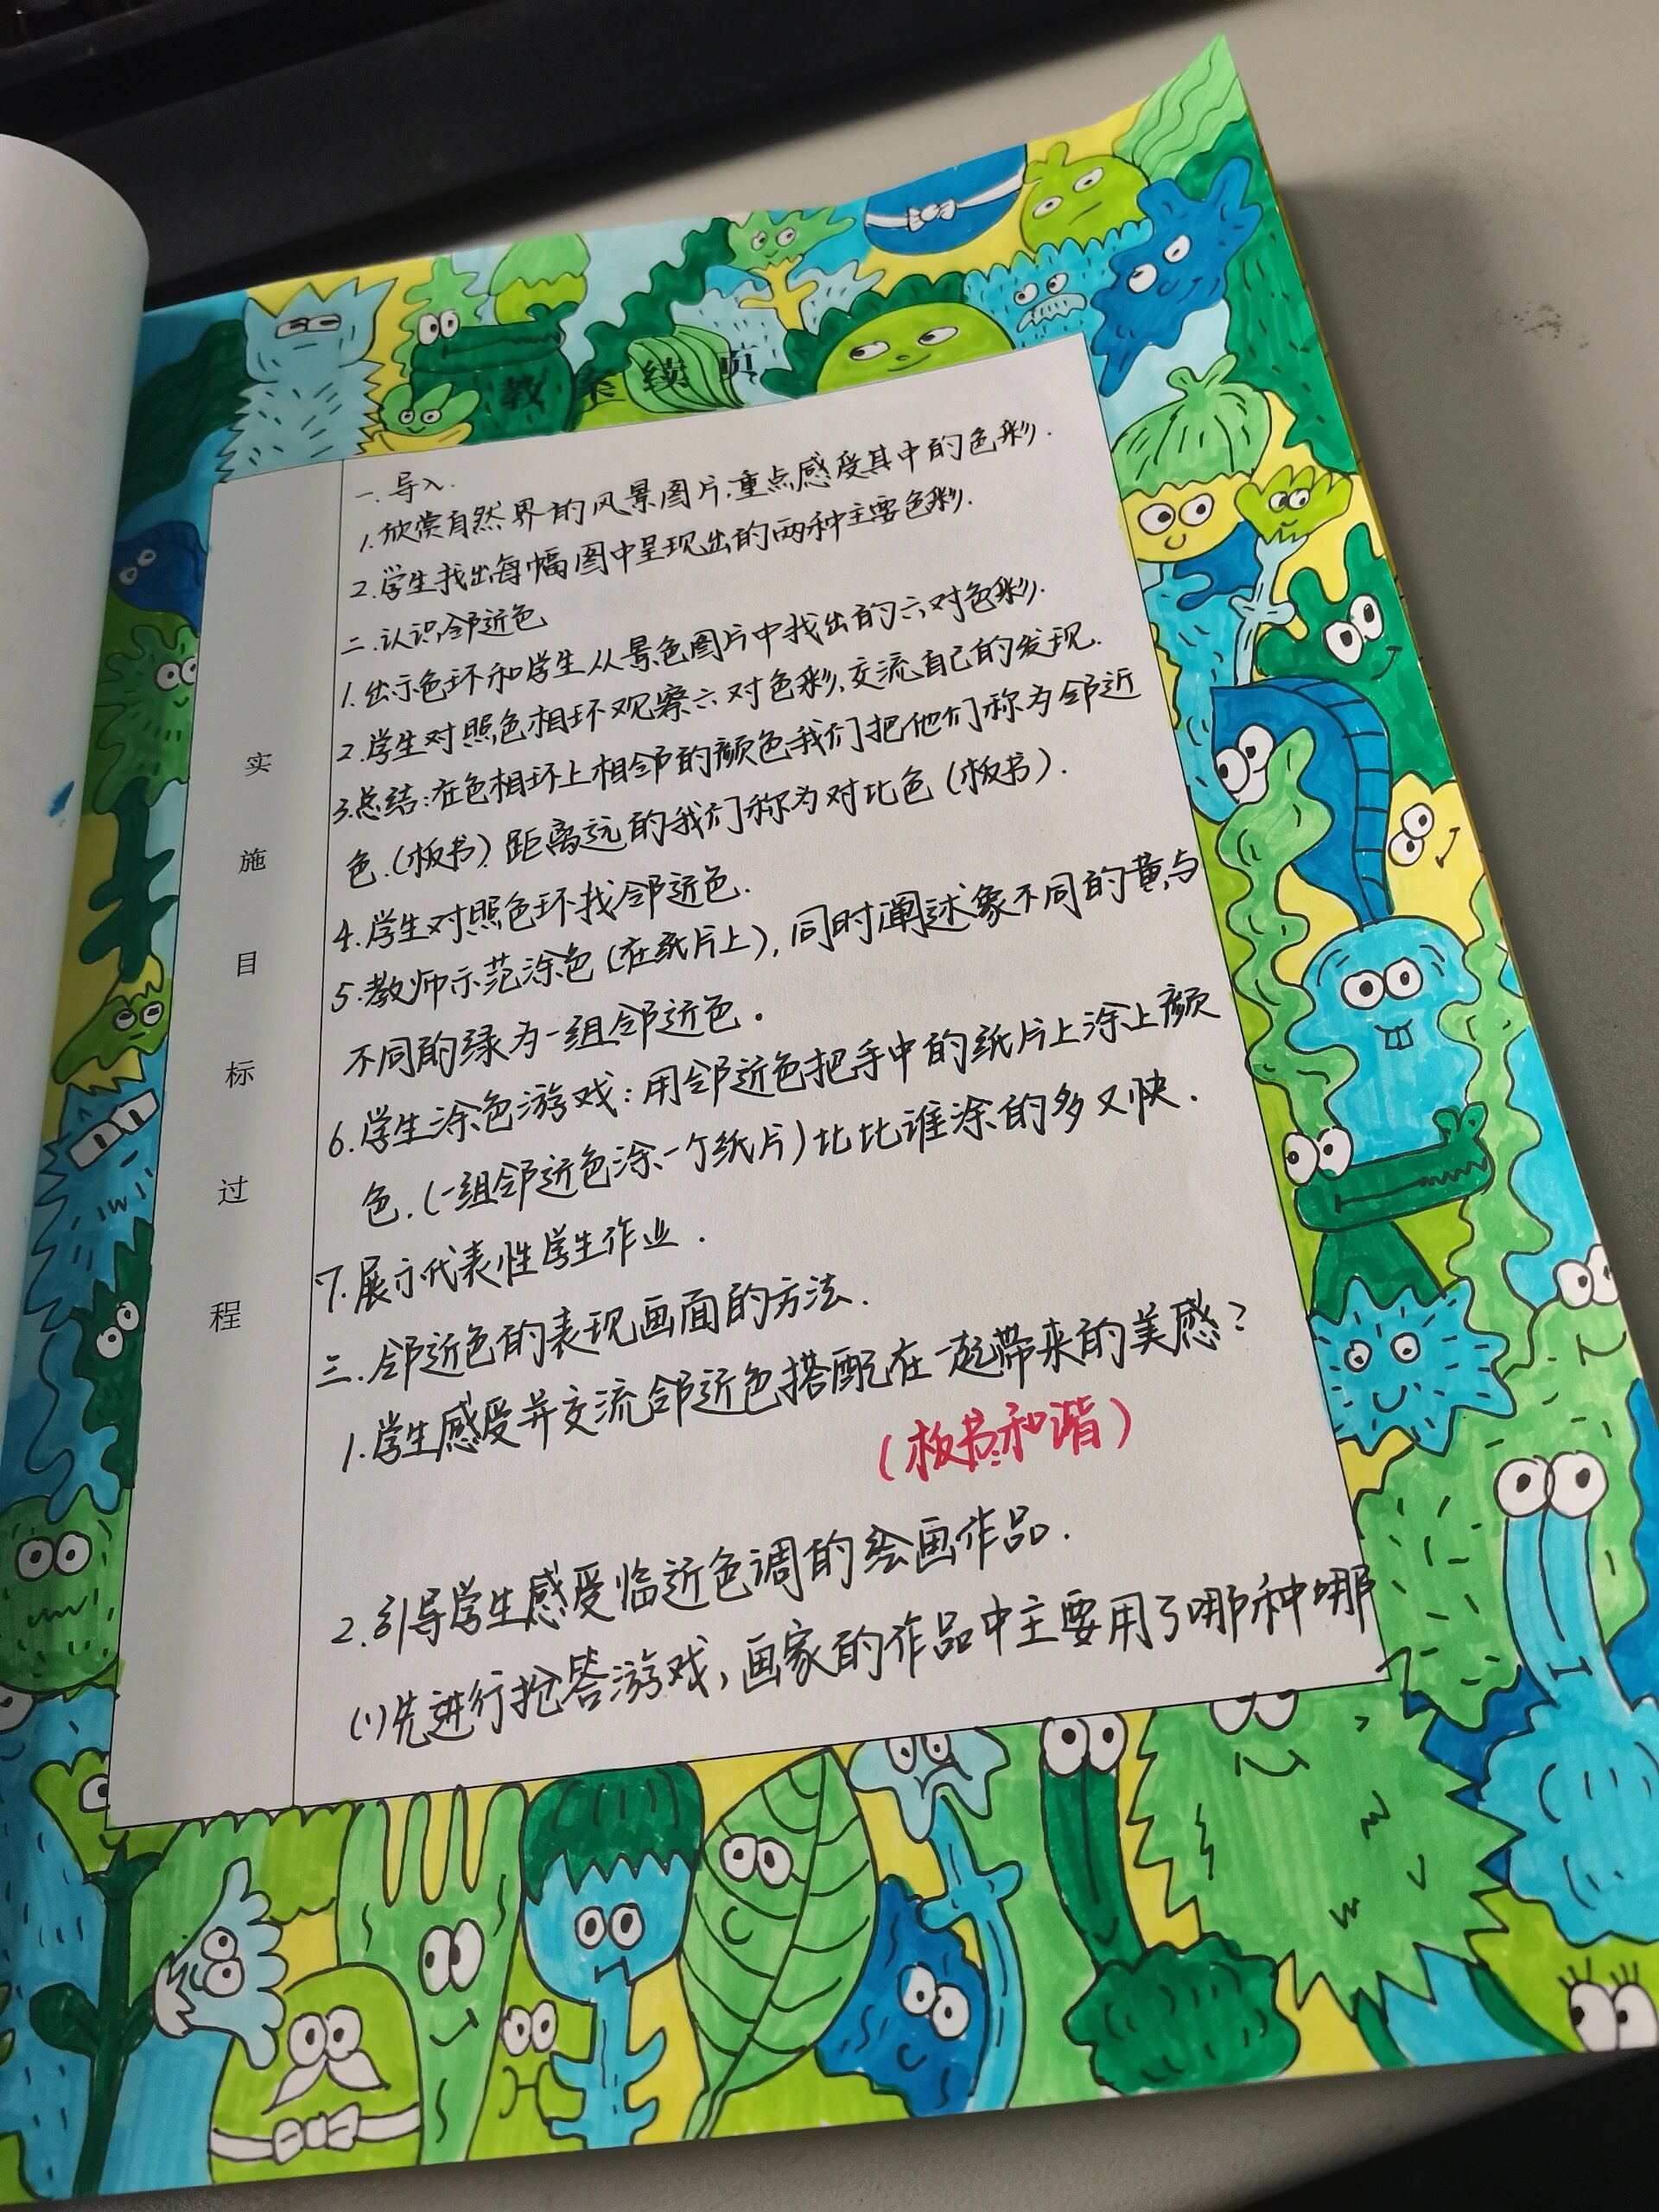 教案续页
实施目标过程
一.导入.
1.欣赏自然界的风景图片,重点感受其中的色彩.
2.学生找出每幅图中呈现出的两种主要色彩.
二.认识邻近色
1.出示色环和学生从景色图片中找出的六对色彩.
2.学生对照色相环观察六对色彩,交流自己的发现.
3.总结:在色相环上相邻的颜色我们把他们称为邻近
色.(板书).距离远的我们称为对比色(板书).
4.学生对照色环找邻近色.
5.教师示范涂色(在纸片上),同时阐述象不同的黄与
不同的绿为一组邻近色.
6.学生涂色游戏:用邻近色把手中的纸片上涂上颜
色.(一组邻近色涂一个纸片)比比谁涂的多又快.
7.展示代表性学生作业.
三.邻近色的表现画面的方法.
1.学生感受并交流邻近色搭配在一起带来的美感?
(板书:和谐)
2.引导学生感受临近色调的绘画作品.
(1)先进行抢答游戏,画家的作品中主要用了哪种哪